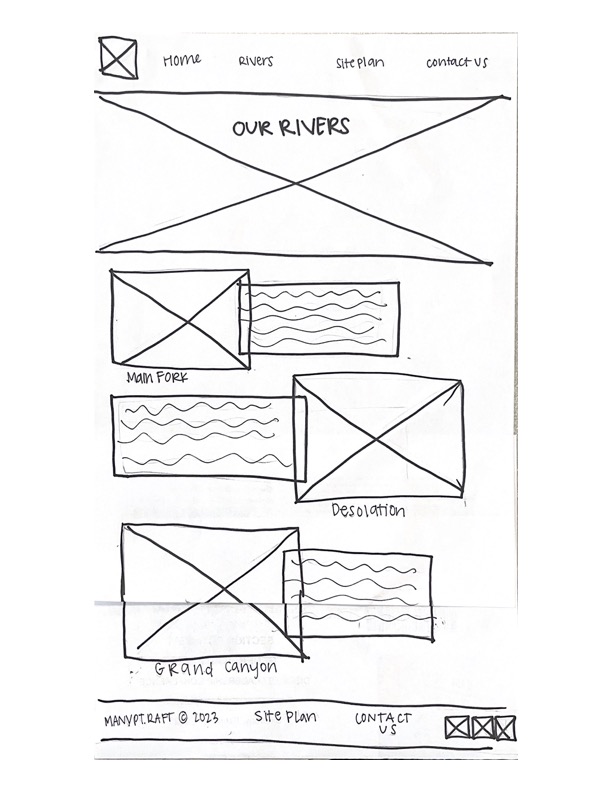 Home Rivers Site Plan Contact Us
OUR RIVERS
Main Fork
Desolation
Grand Canyon
MANYPT.RAFT © 2023 Site Plan CONTACT
US